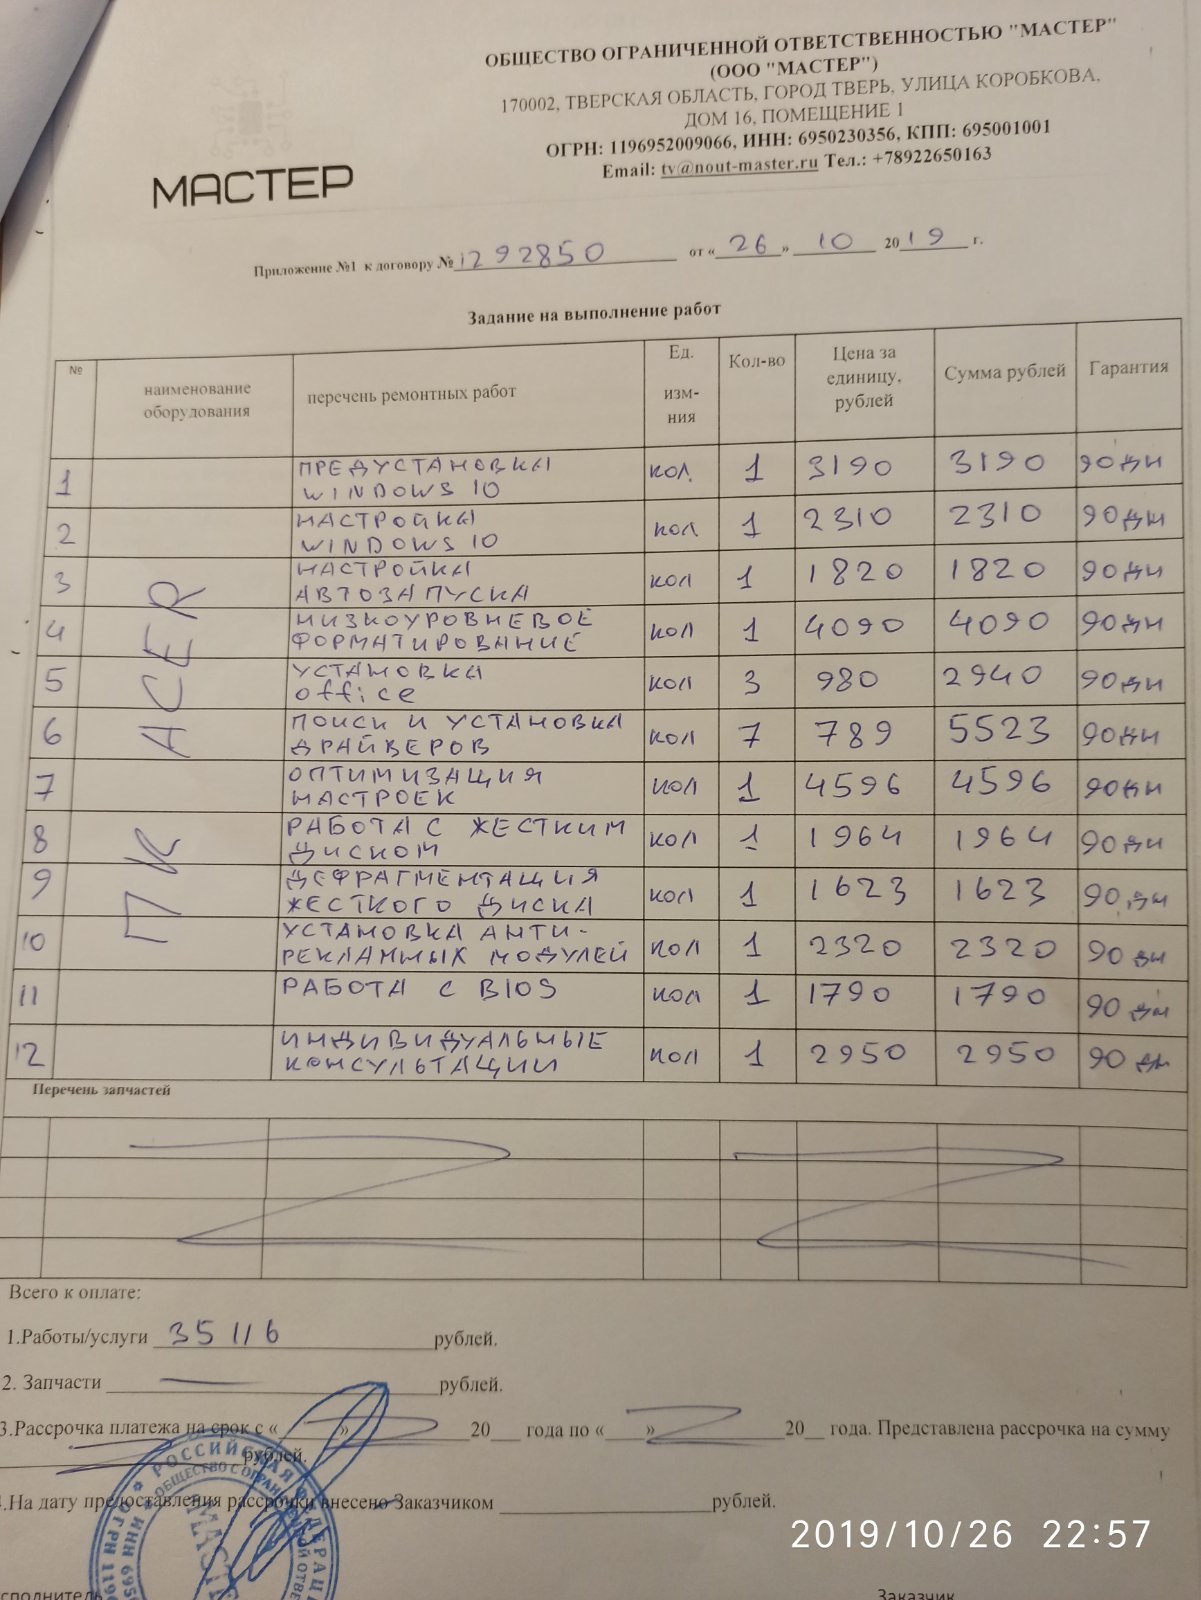 ОБЩЕСТВО ОГРАНИЧЕННОЙ ОТВЕТСТВЕННОСТЬЮ "МАСТЕР"
(ООО "МАСТЕР")
170002, ТВЕРСКАЯ ОБЛАСТЬ, ГОРОД ТВЕРЬ, УЛИЦА КОРОБКОВА,
ДОМ 16, ПОМЕЩЕНИЕ 1
ОГРН: 1196952009066, ИНН: 6950230356, КПП: 695001001
Email: tv@nout-master.ru Тел.: +78922650163
МАСТЕР
Приложение №1 к договору № 1292850 от «26» 10 2019 г.
Задание на выполнение работ
№ наименование оборудования перечень ремонтных работ Ед. изм-ния Кол-во Цена за единицу, рублей Сумма рублей Гарантия
ПК ACER
1 ПРЕДУСТАНОВКА WINDOWS 10 кол. 1 3190 3190 90 дн
2 НАСТРОЙКА WINDOWS 10 кол 1 2310 2310 90 дн
3 НАСТРОЙКА АВТОЗАПУСКА кол 1 1820 1820 90 дн
4 НИЗКОУРОВНЕВОЕ ФОРМАТИРОВАНИЕ кол 1 4090 4090 90 дн
5 УСТАНОВКА office кол 3 980 2940 90 дн
6 ПОИСК И УСТАНОВКА ДРАЙВЕРОВ кол 7 789 5523 90 дн
7 ОПТИМИЗАЦИЯ НАСТРОЕК кол 1 4596 4596 90 дн
8 РАБОТА С ЖЕСТКИМ ДИСКОМ кол 1 1964 1964 90 дн
9 ДЕФРАГМЕНТАЦИЯ ЖЕСТКОГО ДИСКА кол 1 1623 1623 90 дн
10 УСТАНОВКА АНТИ-РЕКЛАМНЫХ МОДУЛЕЙ кол 1 2320 2320 90 дн
11 РАБОТА С BIOS кол 1 1790 1790 90 дн
12 ИНДИВИДУАЛЬНЫЕ КОНСУЛЬТАЦИИ кол 1 2950 2950 90 дн
Перечень запчастей
Всего к оплате:
1.Работы/услуги 35116 рублей.
2. Запчасти — рублей.
3.Рассрочка платежа на срок с « » 20 года по « » 20 года. Представлена рассрочка на сумму
рублей.
.На дату предоставления рассрочки внесено Заказчиком рублей.
РОССИЙСКАЯ ФЕДЕРАЦ
ОБЩЕСТВО С ОГРАНИЧЕННОЙ ОТВЕ
2019/10/26 22:57
сполнитель
Заказчик